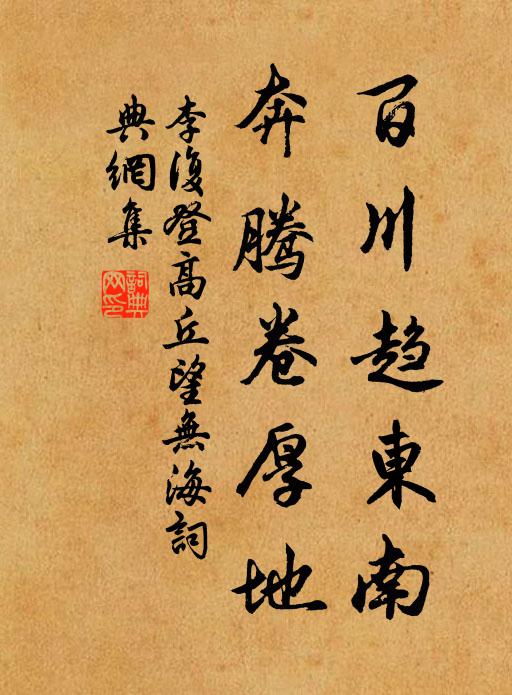 百川趨東南
奔騰卷厚地
李復登高丘望無海詞
典網集
詞典網印